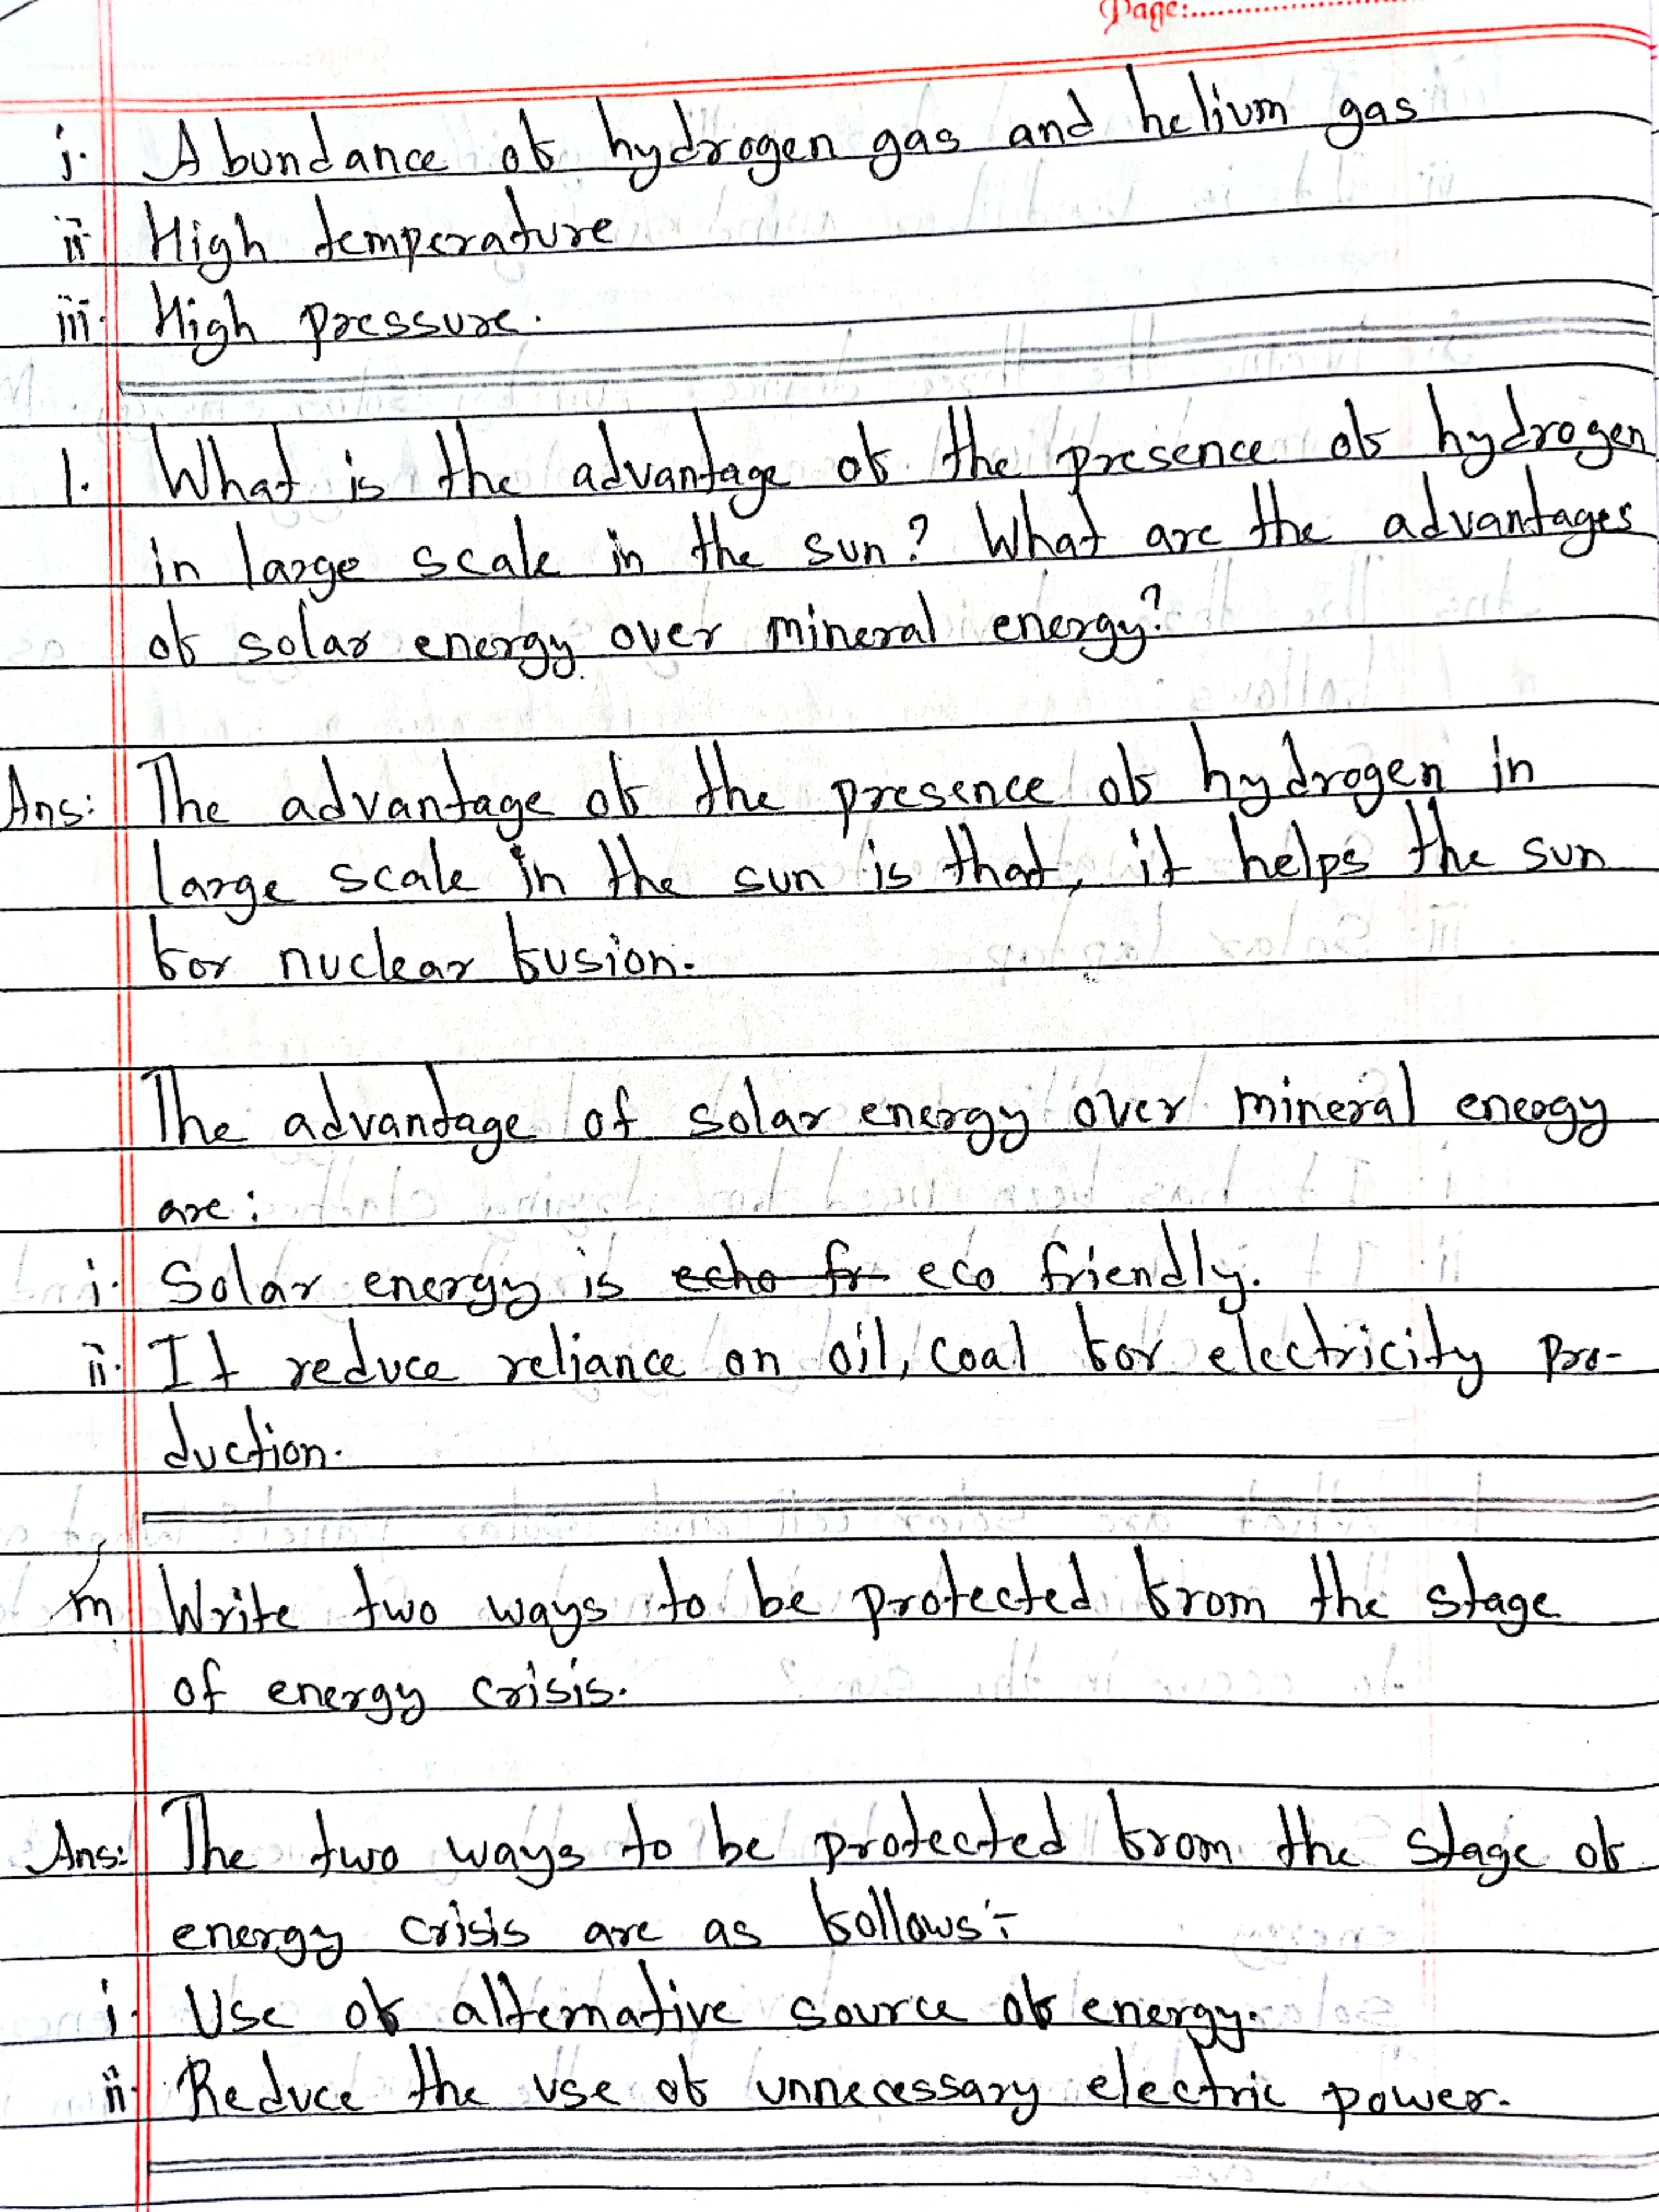 Page:..................
i. Abundance of hydrogen gas and helium gas
ii High temperature
iii. High pressure.
l. What is the advantage of the presence of hydrogen
in large scale in the sun? What are the advantages
of solar energy over mineral energy?
Ans: The advantage of the presence of hydrogen in
large scale in the sun is that, it helps the sun
for nuclear fusion.
The advantage of solar energy over mineral energy
are:
i. Solar energy is echo fr eco friendly.
ii. It reduce reliance on oil, coal for electricity pro-
duction.
m Write two ways to be protected from the stage
of energy crisis.
Ans: The two ways to be protected from the stage of
energy crisis are as follows:-
i. Use of alternative source of energy.
ii. Reduce the use of unnecessary electric power.